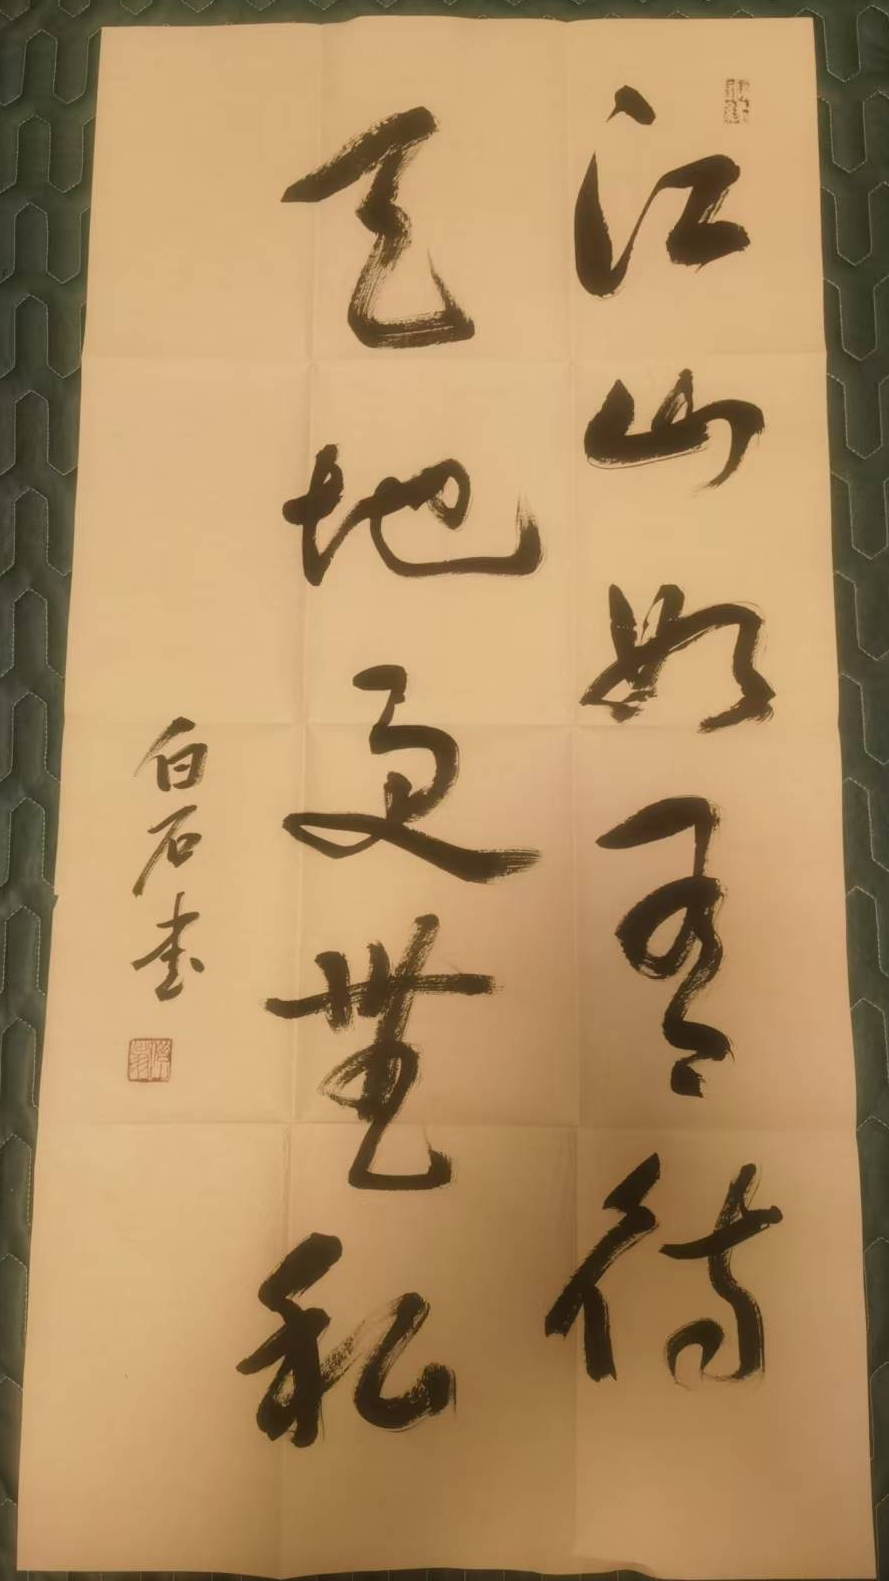 江山如有待
天地更無私
白石書